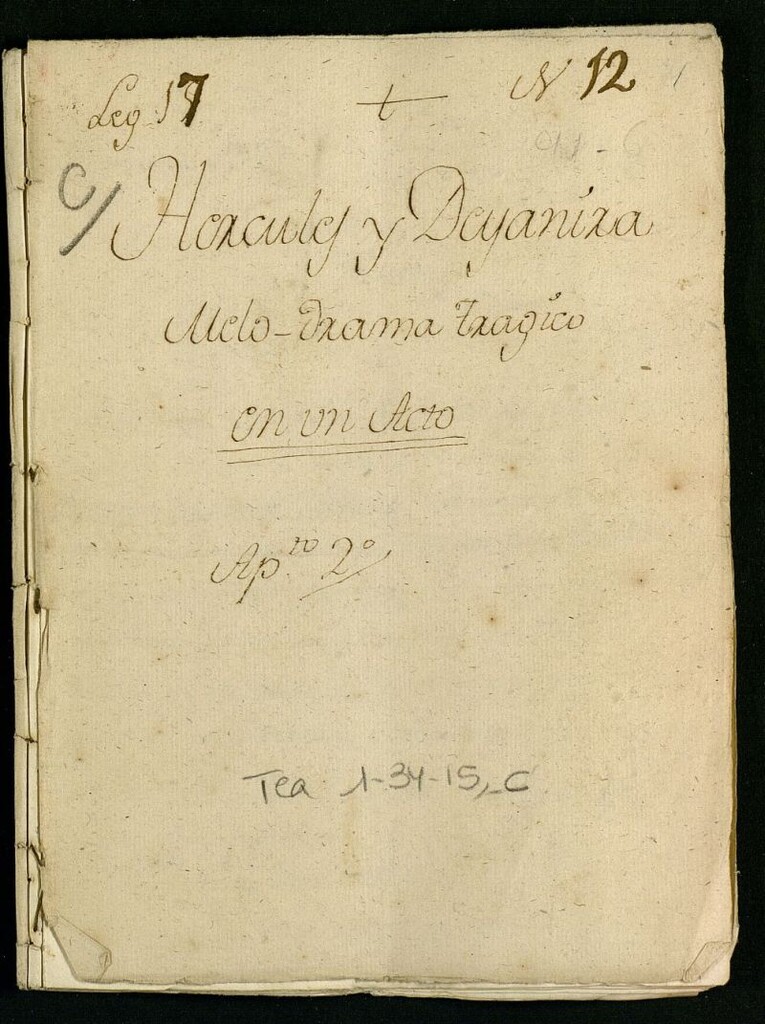 Leg 17 + N 12
C/ Hercules y Deyanira
Melo-drama tragico
en un Acto
Ap.to 2º
Tea 1-34-15,-C